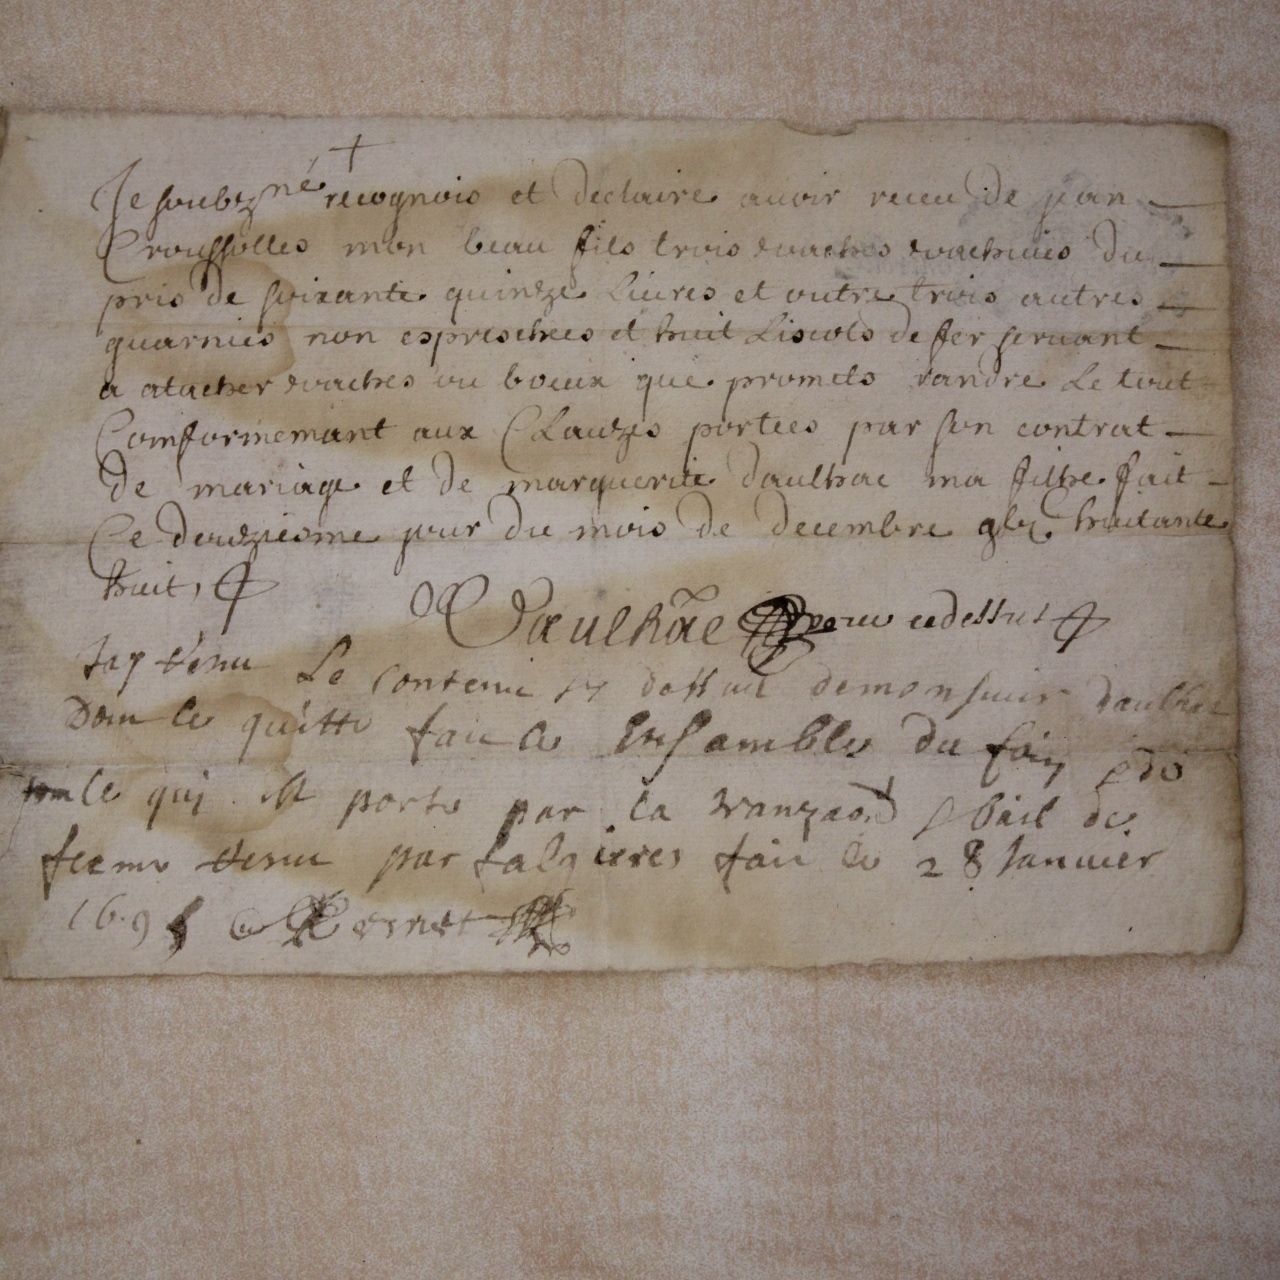 +
Je soubzné recognois et declaire avoir receu de jan
Croussolles mon beau fils trois vaches vachuies du
pris de soixante quinze Livres et outre trois autres
guarnies non esprechees et huit Liscols de fer servant
a atacher vaches ou boeux que promets randre Le tout
Comformemant aux Clauzes portees par son contrat
de mariage et de marguerite daulhac ma filhe fait
Ce deuzriesme jour du mois de decembre huitante
huit
Daulhac ce dessus
Jay Le contenu sy dessus de monsieur daulhac
Dom le quitte fait Ensamble du foin
ce quj est porte par la bail de
ferme par fait le 28 Janvier
169